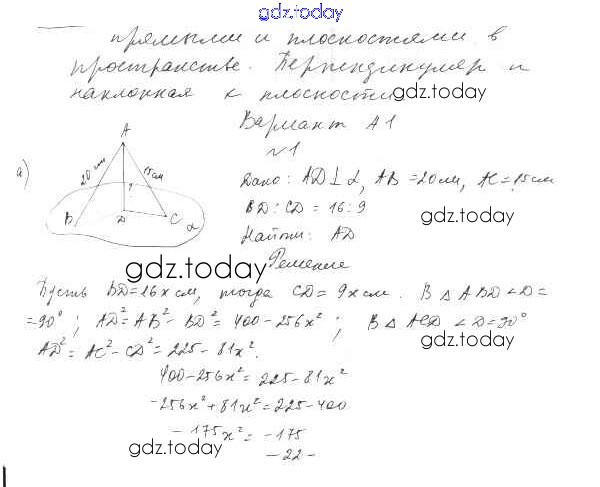 gdz.today
прямыми и плоскостями в
пространстве. Перпендикуляр и
наклонная к плоскости gdz.today
Вариант А1
а)
A
20 см
15 см
?
B
D
C
α
№1
Дано: AD ⊥ α, AB = 20 см, AC = 15 см
BD : CD = 16 : 9
gdz.today
Найти: AD
gdz.today
Решение
Пусть BD = 16x см, тогда CD = 9x см. В △ ABD ∠D =
= 90°; AD² = AB² - BD² = 400 - 256x²; В △ ACD ∠D = 90°
AD² = AC² - CD² = 225 - 81x².
gdz.today
400 - 256x² = 225 - 81x²
-256x² + 81x² = 225 - 400
- 175x² = -175
gdz.today
- 22 -